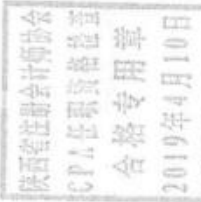 陕西省注册会计师协会
CPA 任职资格检查
合格专用章
2019年4月10日